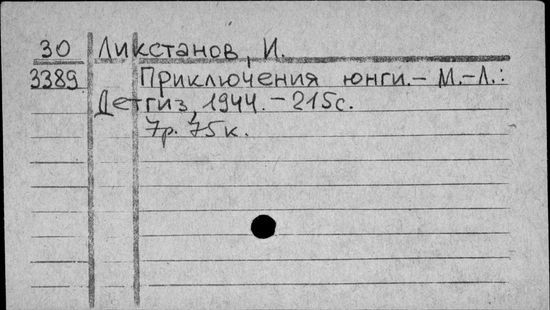 30 Ликстанов, И.
3389 Приключения юнги.- М.-Л.:
Детгиз, 1944. - 215с.
7р. 75к.